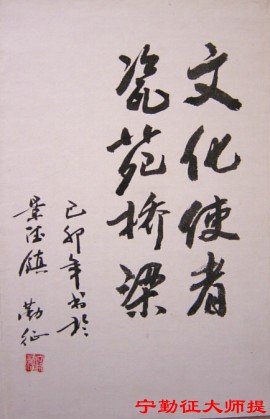 文化使者
瓷苑桥梁
己卯年书於
景德镇 勤征
宁勤征大师提